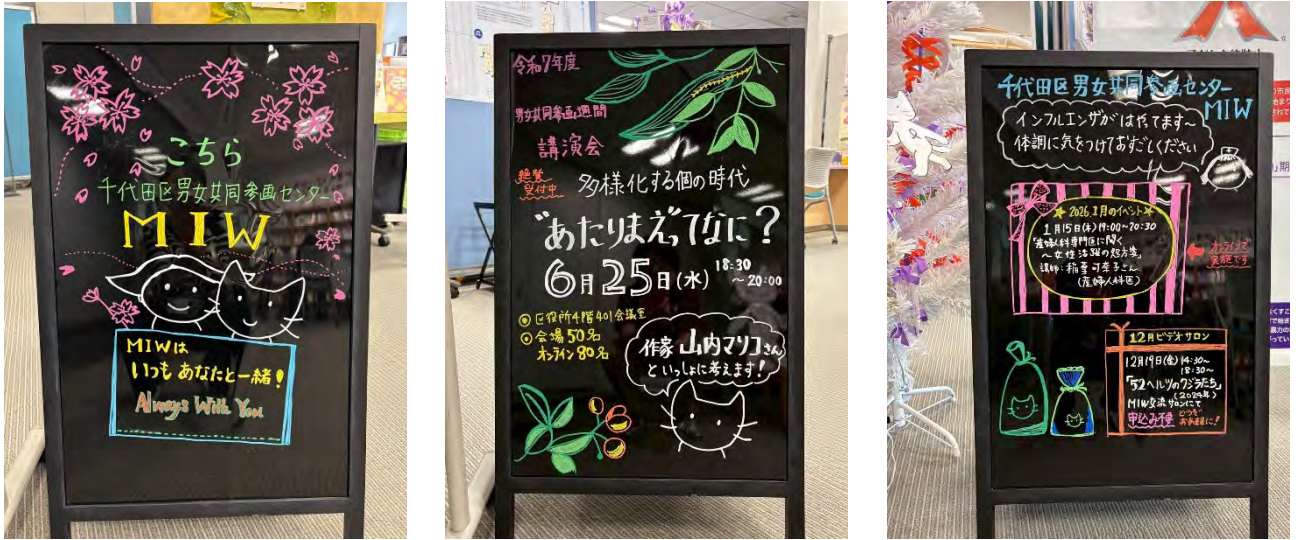 こちら
千代田区男女共同参画センター
MIW
MIWは
いつもあなたと一緒!
Always With You
令和7年度
男女共同参画週間
講演会
絶賛
受付中
多様化する個の時代
"あたりまえ"ってなに?
6月25日(水) 18:30
~20:00
◎区役所4階401会議室
◎会場50名
オンライン80名
作家 山内マリコさん
といっしょに考えます!
千代田区男女共同参画センター
MIW
インフルエンザがはやってます~
体調に気をつけておすごしください
★2026.1月のイベント★
1月15日(木)19:00~20:30
「産婦人科専門医に聞く
~女性活躍の処方箋」
講師:稲葉可奈子さん
(産婦人科医)
オンラインで
実施です
12月ビデオサロン
12月19日(金)14:30~
18:30~
「52ヘルツのクジラたち」
(2024年)
MIW交流サロンにて
申込み不要 どうぞ
お気軽に!